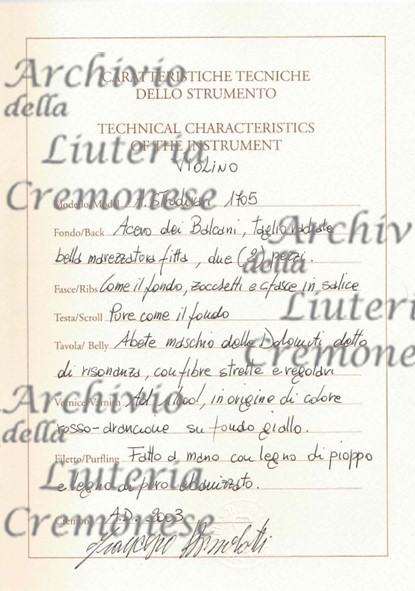 CARATTERISTICHE TECNICHE
DELLO STRUMENTO
TECHNICAL CHARACTERISTICS
OF THE INSTRUMENT
VIOLINO
Modello/Model A. Stradivari 1705
Fondo/Back Acero dei Balcani, taglio radiale
bella marezzatura fitta, due (2) pezzi.
Fasce/Ribs Come il fondo, zocchetti e cfasce in salice
Testa/Scroll Pure come il fondo
Tavola/ Belly Abete maschio delle Dolomiti detto
di risonanza, con fibre strette e regolari
Vernice/Varnish Ad alcool, in origine di colore
rosso-arancione su fondo giallo.
Filetto/Purfling Fatto a mano con legno di pioppo
e legno di pero ebanizzato.
A.D. 2003
Archivio
della
Liuteria
Cremonese
Archivio
della
Liuteria
Cremonese
Archivio
della
Liuteria
Cremonese